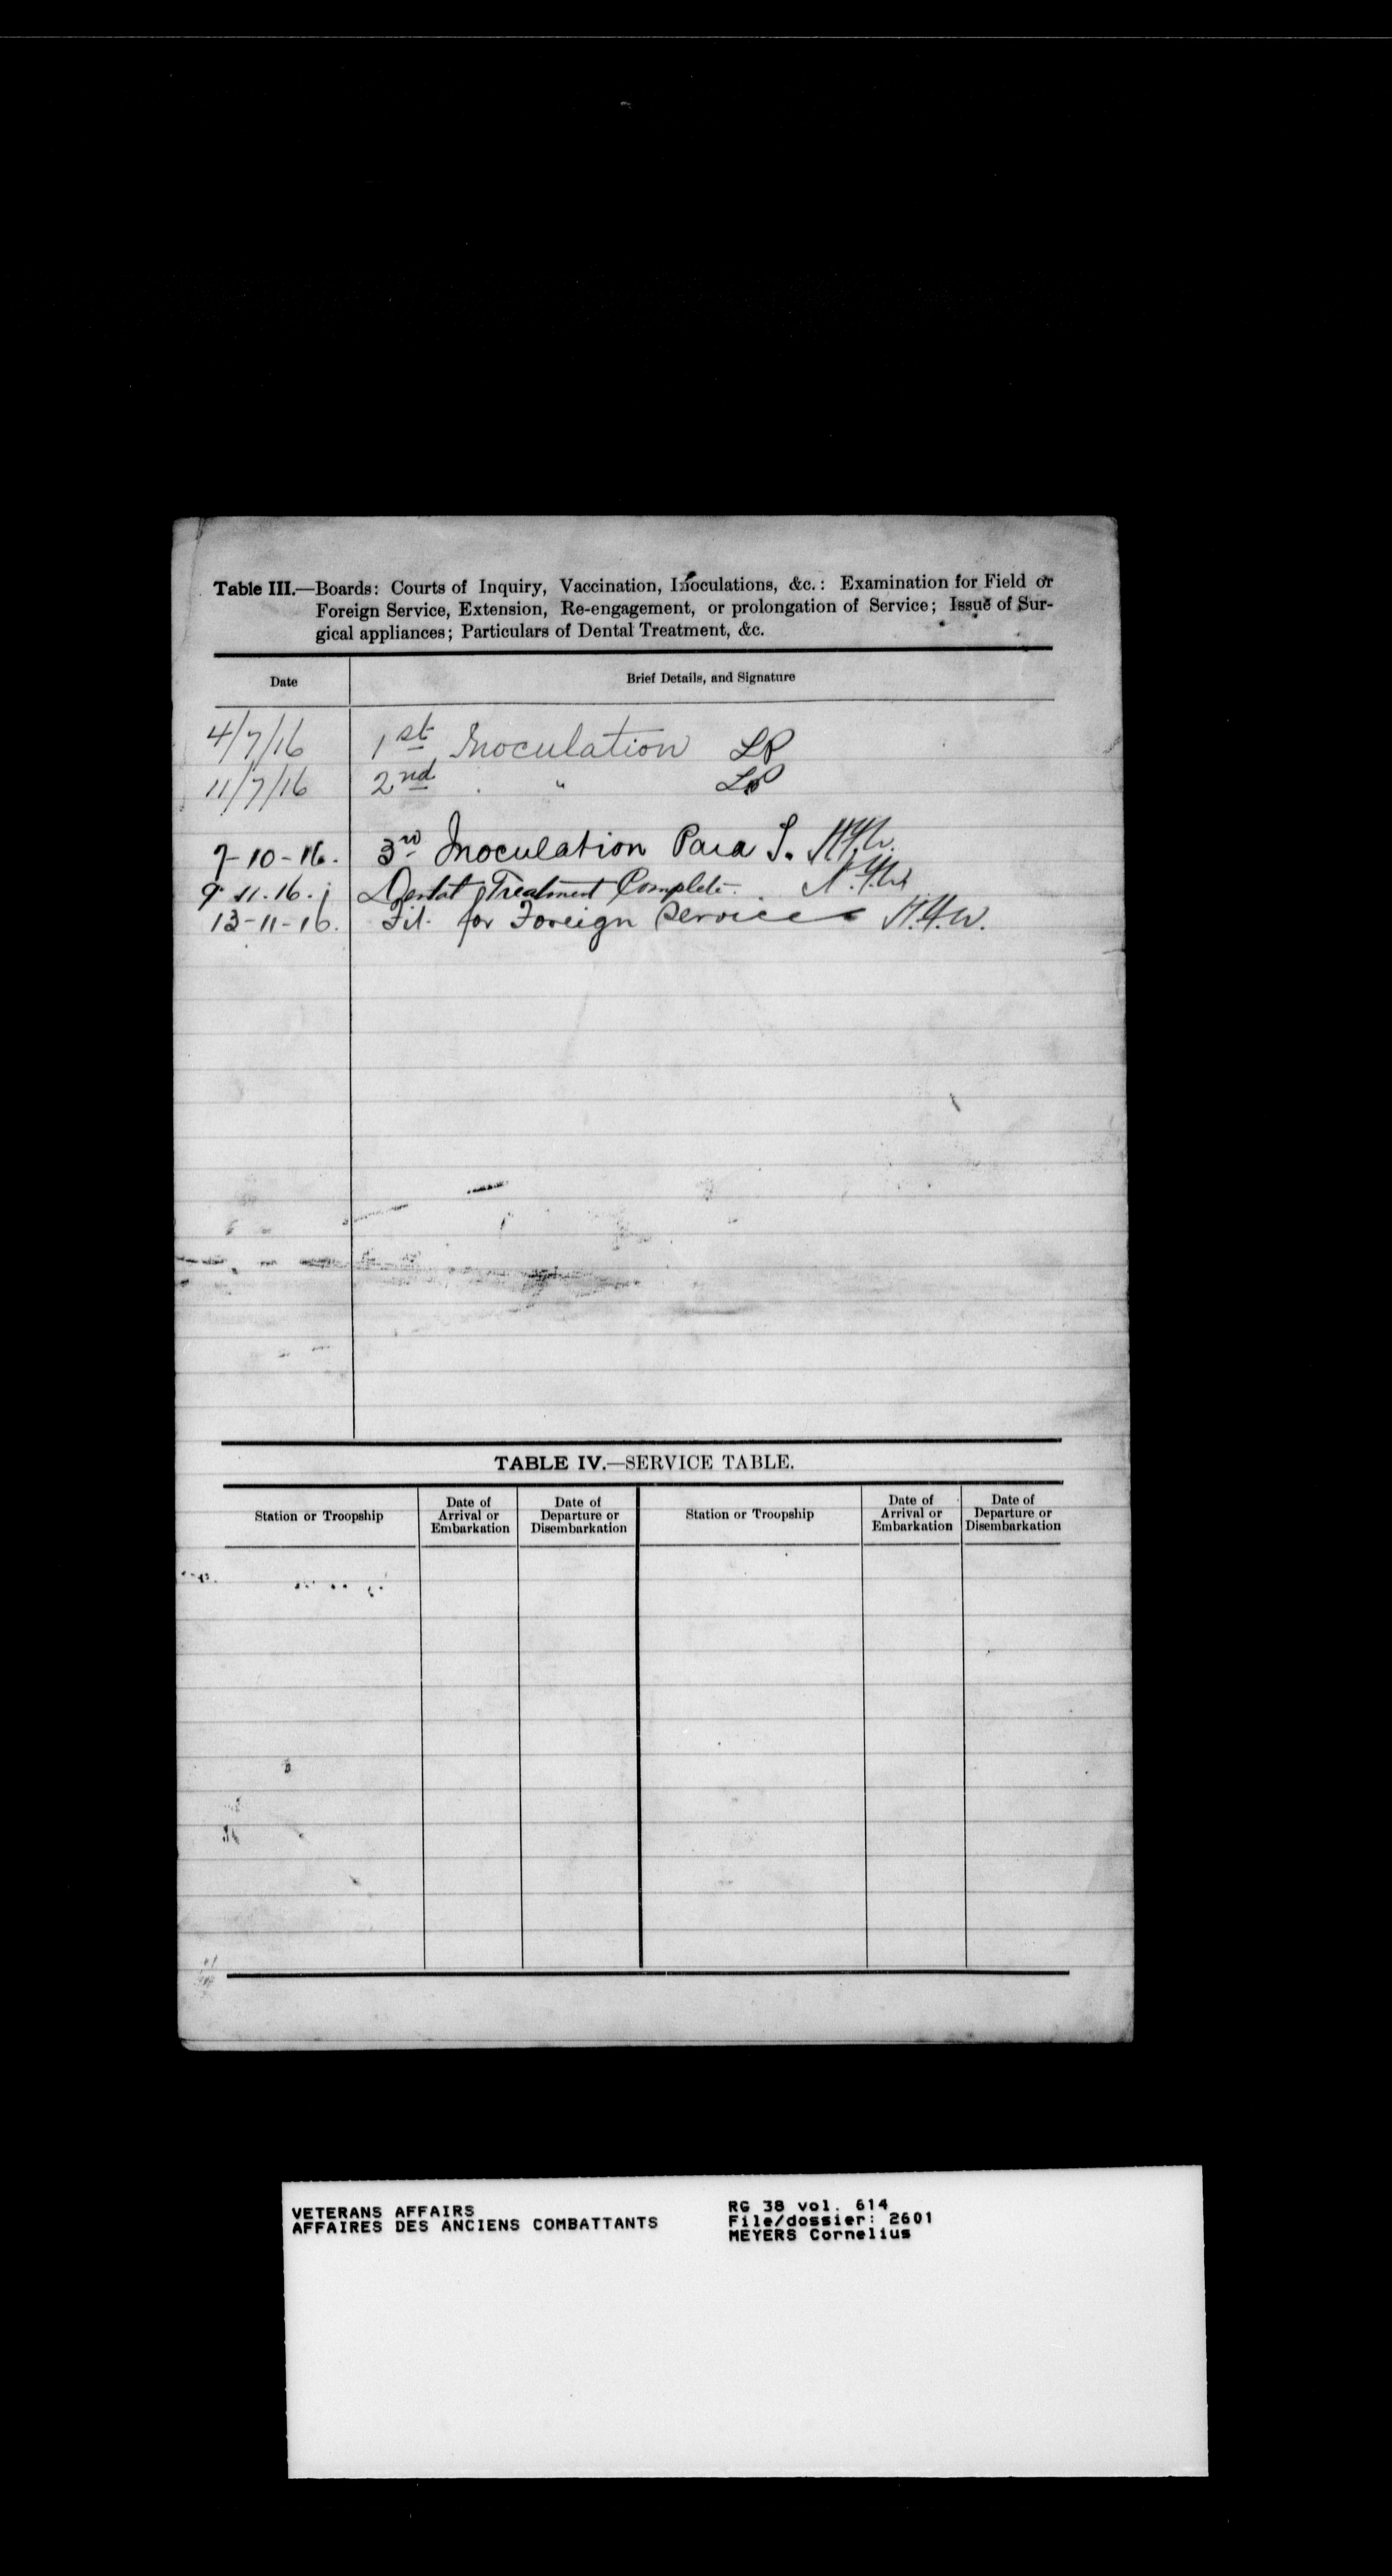 Table III.—Boards: Courts of Inquiry, Vaccination, Inoculations, &c.: Examination for Field or
Foreign Service, Extension, Re-engagement, or prolongation of Service; Issue of Sur-
gical appliances; Particulars of Dental Treatment, &c.
Date Brief Details, and Signature
4/7/16 1st Inoculation LP
11/7/16 2nd " LP
7-10-16. 3rd Inoculation Para T.
9.11.16. Dental Treatment Complete.
13-11-16. Fit for Foreign Service H.H.W.
TABLE IV.—SERVICE TABLE.
Station or Troopship Date of Arrival or Embarkation Date of Departure or Disembarkation Station or Troopship Date of Arrival or Embarkation Date of Departure or Disembarkation
VETERANS AFFAIRS RG 38 vol. 614
AFFAIRES DES ANCIENS COMBATTANTS File/dossier: 2601
MEYERS Cornelius